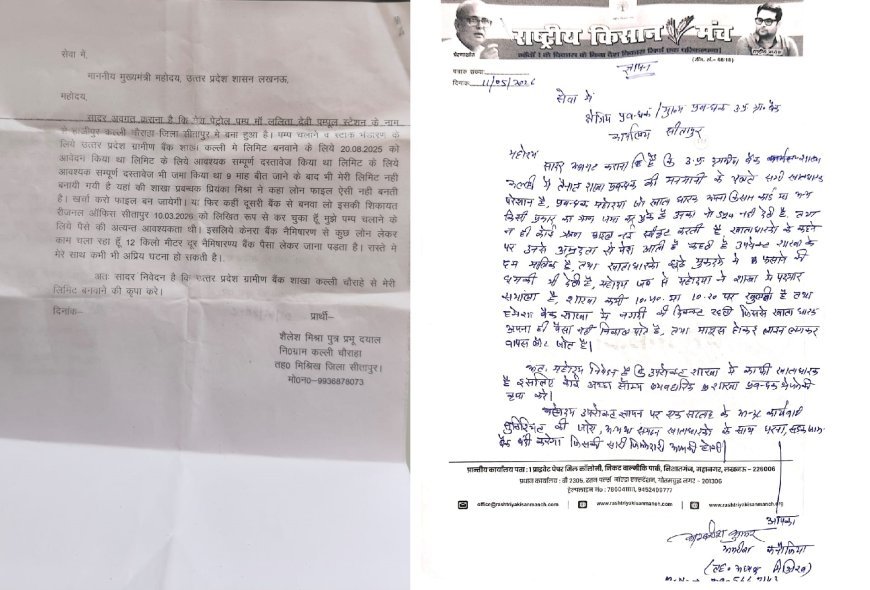 सेवा में,
माननीय मुख्यमंत्री महोदय, उत्तर प्रदेश शासन लखनऊ,
महोदय,
सादर अवगत कराना है कि मेरा पेट्रोल पम्प माँ ललिता देवी पम्पूल स्टेशन के नाम
से काजीपुर कल्ली चौराहा जिला सीतापुर में बना हुआ है। पम्प चलाने व स्टाक भंडारण के
लिये उत्तर प्रदेश ग्रामीण बैंक शाखा कल्ली मे लिमिट बनवाने के लिये 20.08.2025 को
आवेदन किया था लिमिट के लिये आवश्यक सम्पूर्ण दस्तावेज किया था लिमिट के लिये
आवश्यक सम्पूर्ण दस्तावेज भी जमा किया था 9 माह बीत जाने के बाद भी मेरी लिमिट नही
बनायी गयी है यहां की शाखा प्रबन्धक प्रियंका मिश्रा ने कहा लोन फाइल ऐसी नही बनती
है। खर्चा करो फाइल बन जायेगी। या फिर कही दूसरी बैंक से बनवा लो इसकी शिकायत
रीजनल ऑफिस सीतापुर 10.03.2026 को लिखित रूप से कर चुका हूँ मुझे पम्प चलाने के
लिये पैसे की अत्यन्त आवश्यकता थी। इसलिये केनरा बैंक नैमिषारण से कुछ लोन लेकर
काम चला रहा हूँ, 12 किलो मीटर दूर नैमिषारण्य बैंक पैसा लेकर जाना पडता है। रास्ते मे
मेरे साथ कभी भी अप्रिय घटना हो सकती है।
अतः सादर निवेदन है कि उत्तर प्रदेश ग्रामीण बैंक शाखा कल्ली चौराहे से मेरी
लिमिट बनवाने की कृपा करे।
दिनांक-
प्रार्थी-
शैलेश मिश्रा पुत्र प्रमू दयाल
नि0ग्राम कल्ली चौराहा
तह0 मिश्रिख जिला सीतापुर।
मो0न0-9936878073
राष्ट्रीय किसान मंच
प्रेरणास्रोत
(रजि. सं.- 48/18)
पत्रांक संख्या
दिनांक 11/05/2026
ज्ञापन
सेवा में
क्षेत्रीय प्रबन्धक / मुख्य प्रबन्धक उ.प्र. ग्रा. बैंक
कार्यालय सीतापुर
महोदय
सादर अवगत कराना है कि उ.प्र. ग्रामीण बैंक शाखा
कल्ली में तैनात शाखा प्रबन्धक की मनमानी के चलते सभी खाताधारक
परेशान है, प्रबन्धक महोदया जो खाता धारक अपना किसान कार्ड या अन्य
किसी प्रकार का ऋण जमा कर चुके है उनका भी नही देती है, तथा
न ही कोई ऋण नई स्वीकृत करती है, खाताधारको के कहने
पर उनसे अभद्रता से पेश आती है कहती है उपरोक्त शाखा के
हम मालिक है, तथा खाताधारको झूठे मुकदमे में फंसाने की
धमकी भी देती है, महोदय जब से महोदया ने शाखा में पदभार
सभाला है, शाखा कभी 10.40 या 10.20 पर खुलती है तथा
हमेशा बैंक शाखा में नगदी की दिक्कत रहती जिससे खाता धारक
अपना ही पैसा नही निकाल पाते है, तथा मायूस होकर लाइन लगाकर
वापस लौट जाते है।
अतः महोदय निवेदन है कि उपरोक्त शाखा में काफी खाताधारक
है इसलिए कोई अच्छा सौम्य शाखा प्रबन्धक भेजने की
कृपा करे।
महोदय उपरोक्त ज्ञापन पर एक सप्ताह के अन्दर कार्यवाही
सुनिश्चित की जाये, अन्यथा समस्त खाताधारको के साथ धरना,
करेगा जिसकी सारी जिम्मेदारी आपकी होगी।
प्रान्तीय कार्यालय पता : 1 प्राइवेट पेपर मिल कॉलोनी, निकट वाल्मीकि पार्क, निशातगंज, महानगर, लखनऊ - 226006
प्रधान कार्यालय : बी 2305, गौतमबुद्ध नगर - 201306
हेल्पलाइन No : 786041111, 9452409777
office@rashtriyakisanmanch.com | www.rashtriyakisanmanch.com | www.rashtriyakisanmanch.org
आपका
कुमार
कनौजिया